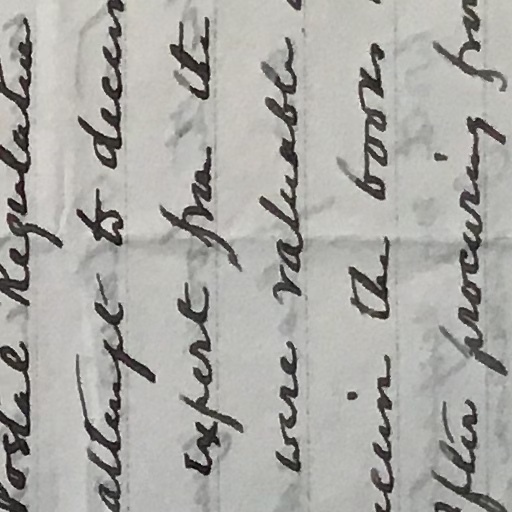 Postal Regulation
attempt to deceiv
expert from the
were valuable
the books
After procuring from